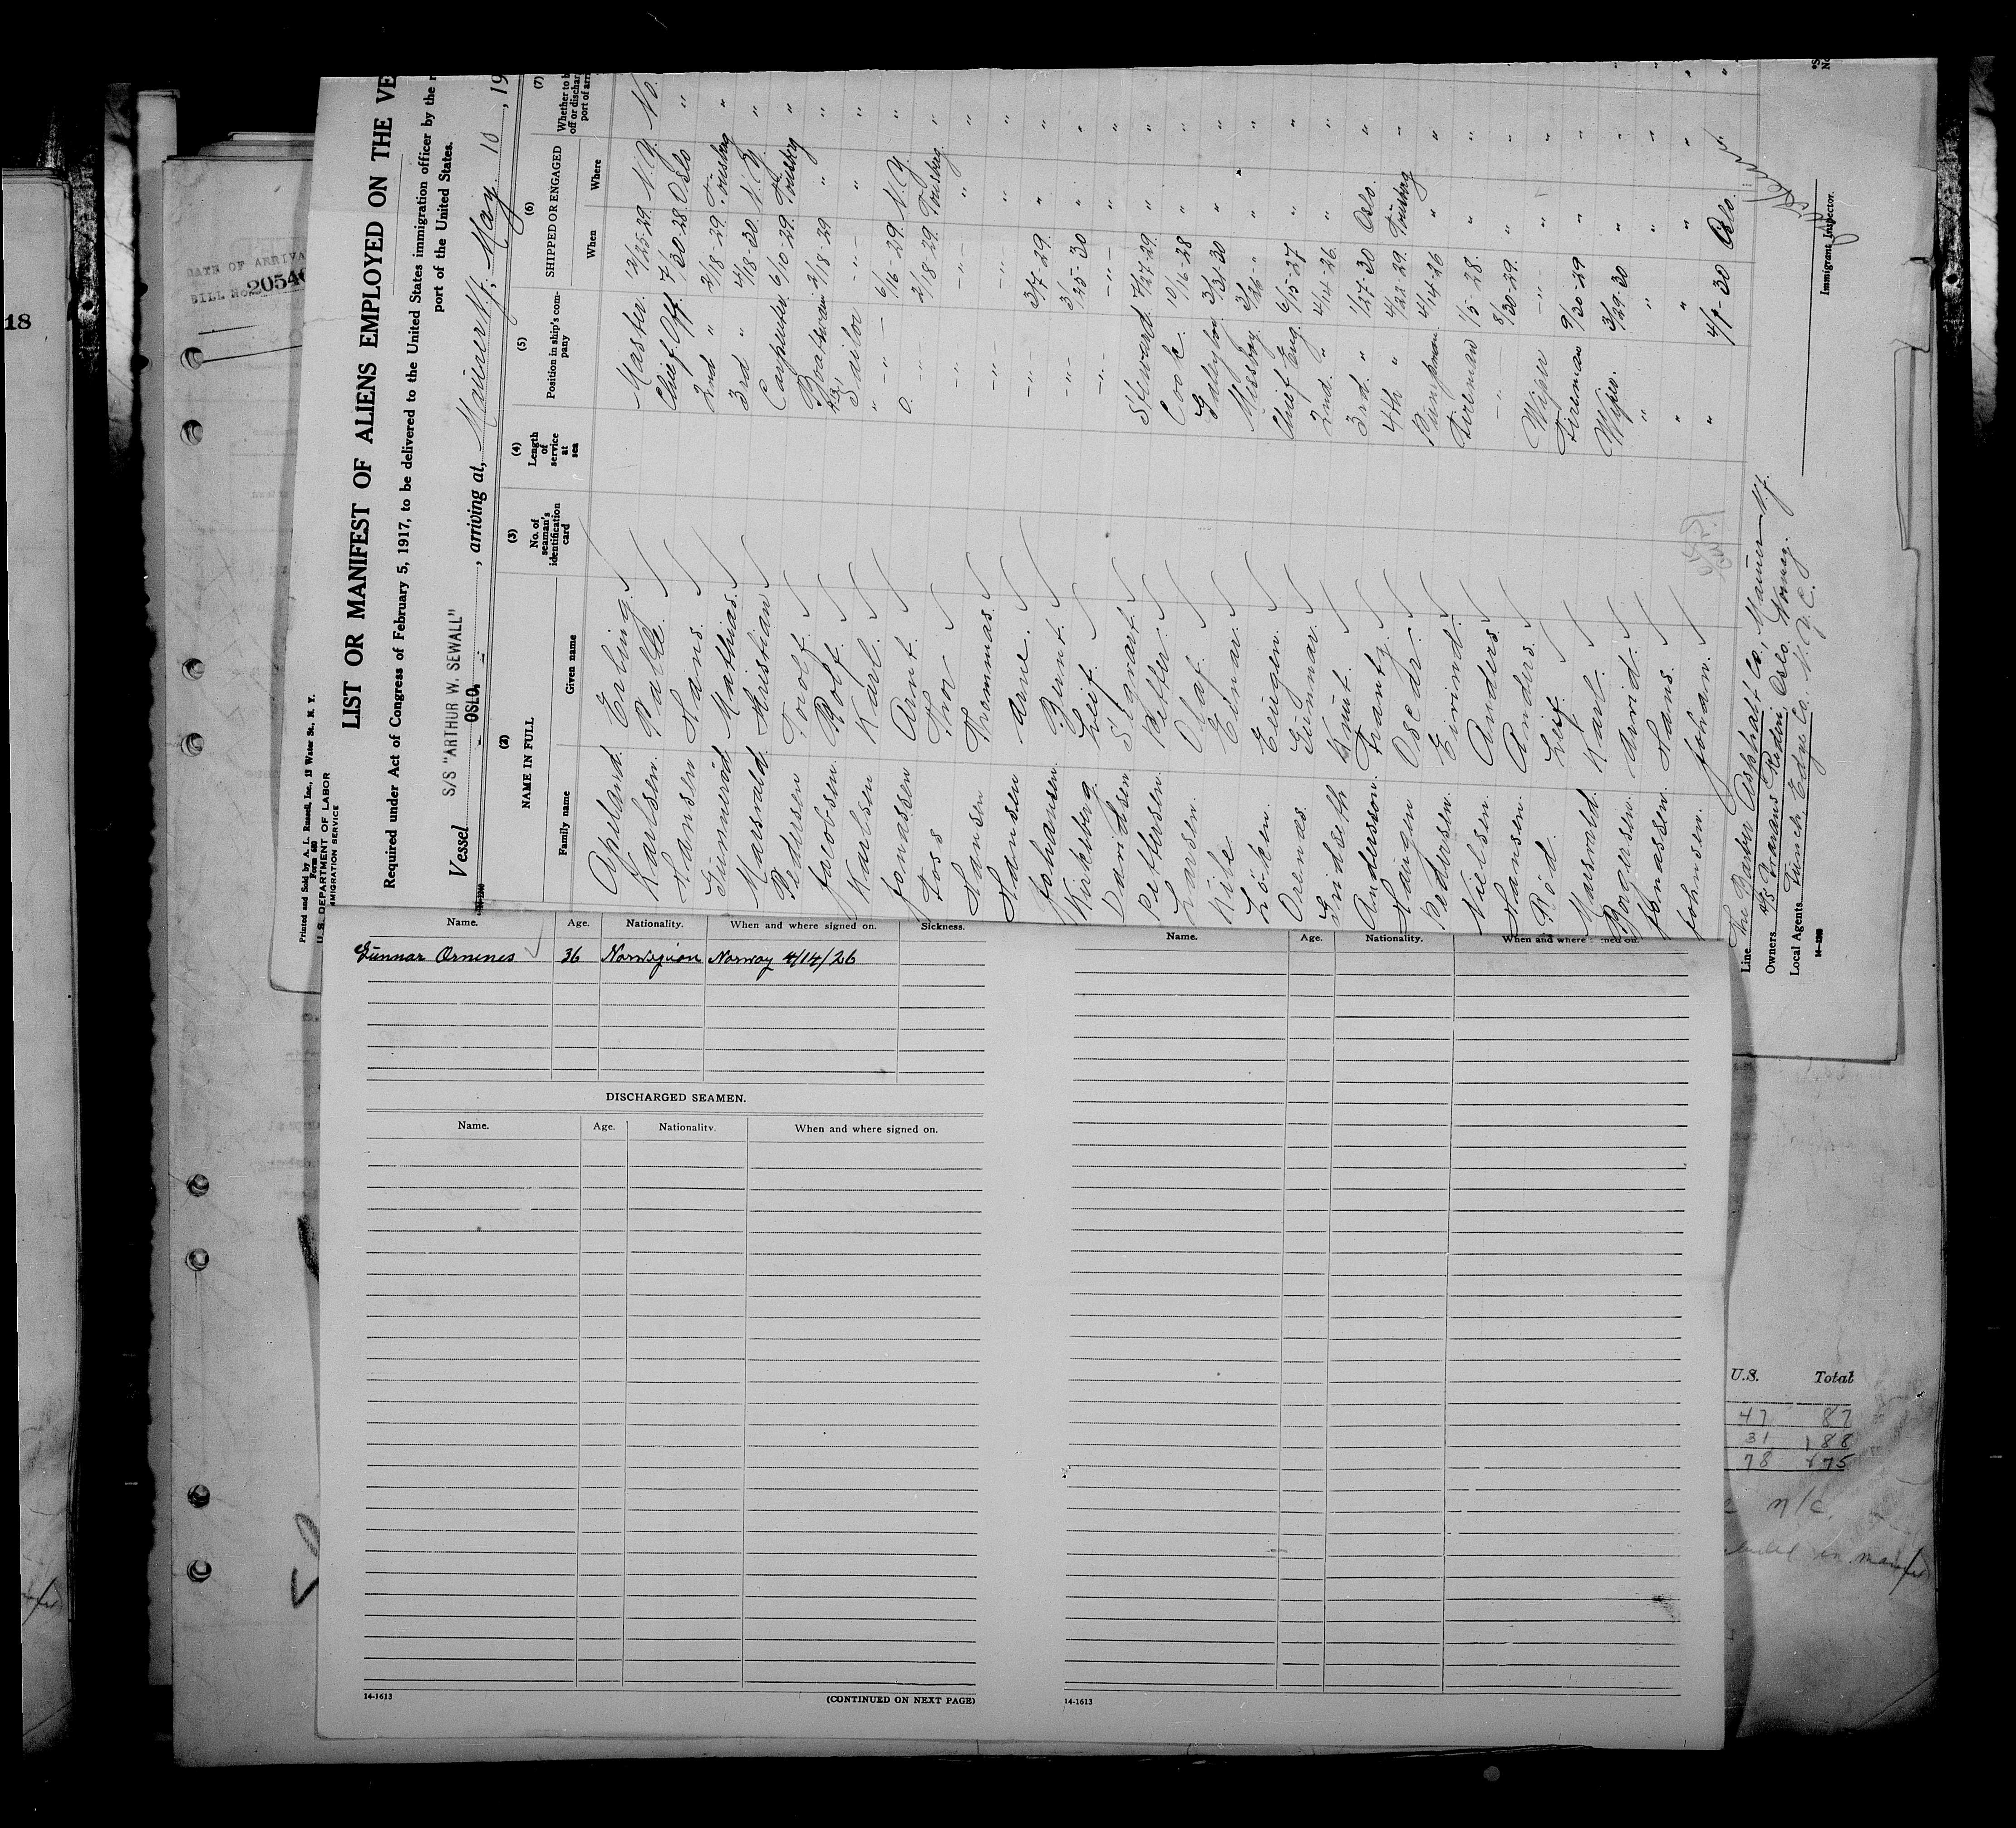 18
DATE OF ARRIVA
BILL No. 2054
Printed and Sold by A. L. Russell, Inc., 13 Water St., N. Y.
Form 680
U. S. DEPARTMENT OF LABOR
IMMIGRATION SERVICE
LIST OR MANIFEST OF ALIENS EMPLOYED ON THE VE
Required under Act of Congress of February 5, 1917, to be delivered to the United States immigration officer by the r
port of the United States.
Vessel S/S "ARTHUR W. SEWALL" OSLO, arriving at, Maurer N.J., May 10, 19
(2) (3) (4) (5) (6) (7)
NAME IN FULL No. of seaman's identification card Length of service at sea Position in ship's company SHIPPED OR ENGAGED Whether to b off or dischar port of arri
Family name Given name When Where
Apeland. Erling. Master. 12/25-29 N.Y. No.
Karlsen. Palle. Chief Off. 7/30-28 Oslo "
Hansen Hans. 2nd " 2/18-29. Tönsberg "
Gunneröd Mathias. 3rd " 4/18-30. N.Y. "
Marsvald. Kristian Carpenter. 6/10-29. Tönsberg "
Pedersen Toolf. Boatswain 2/18-29 " "
Jacobsen. Rolf. Sailor -"- " "
Karlsen Karl. " -"- 6/16-29. N.Y. "
Jonassen Arnt. O. -"- 2/18-29. Tönsberg. "
Foss Thor -"- -"- " "
Hansen Thommas. -"- -"- " "
Hansen Arne. -"- 3/7-29. " "
Johansen. Bernt. -"- 3/25-30 " "
Kirkeberg Leif. -"- -"- " "
Davidsen. Sigvart. Steward. 7/27-29. " "
Pettersen. Petter. Cook. 10/16-28 " "
Larsen. Olaf. Galleyboy. 3/31-30 " "
Kile Einar. Messboy. 3/26-" " "
Löken. Eeugen. Chief Eng. 6/15-27 " "
Örenes. Gunnar. 2nd. " 4/14-26. " "
Gridseth Knut. 3rd. " 1/27-30 Oslo. "
Andersson. Frantz. 4th " 4/22-29. Tönsberg "
Haugen Oscar. Pumpman. 4/14-26 " "
Pedersen. Eivind. Fireman 1/5-28. " "
Nielsen. Anders. -"- 8/30-29. " "
Hansen. Anders. Wiper -"- " "
Röd. Leif. Fireman 9/20-29 " "
Marsvald. Karl. Wiper. 3/29-30 " "
Bogersen. Arvid. " " " "
Jonassen. Hans. " " " "
Johnsen. Johan. " 4/9-30 Oslo. "
Line The Barber Asphalt Co., Maurer N.J.
Owners A/S Oslo. Norway.
Local Agents Funch Edye Co. N.Y.C.
14-1240
Immigrant Inspector.
Name. Age. Nationality. When and where signed on. Sickness.
Gunnar Ornenes 36 Norwegian Norway 4/14/26
DISCHARGED SEAMEN.
Name. Age. Nationality. When and where signed on.
14-1613
(CONTINUED ON NEXT PAGE)
Name. Age. Nationality. When and where signed on.
14-1613
U.S. Total
47 87
31 188
78 275
n/c.